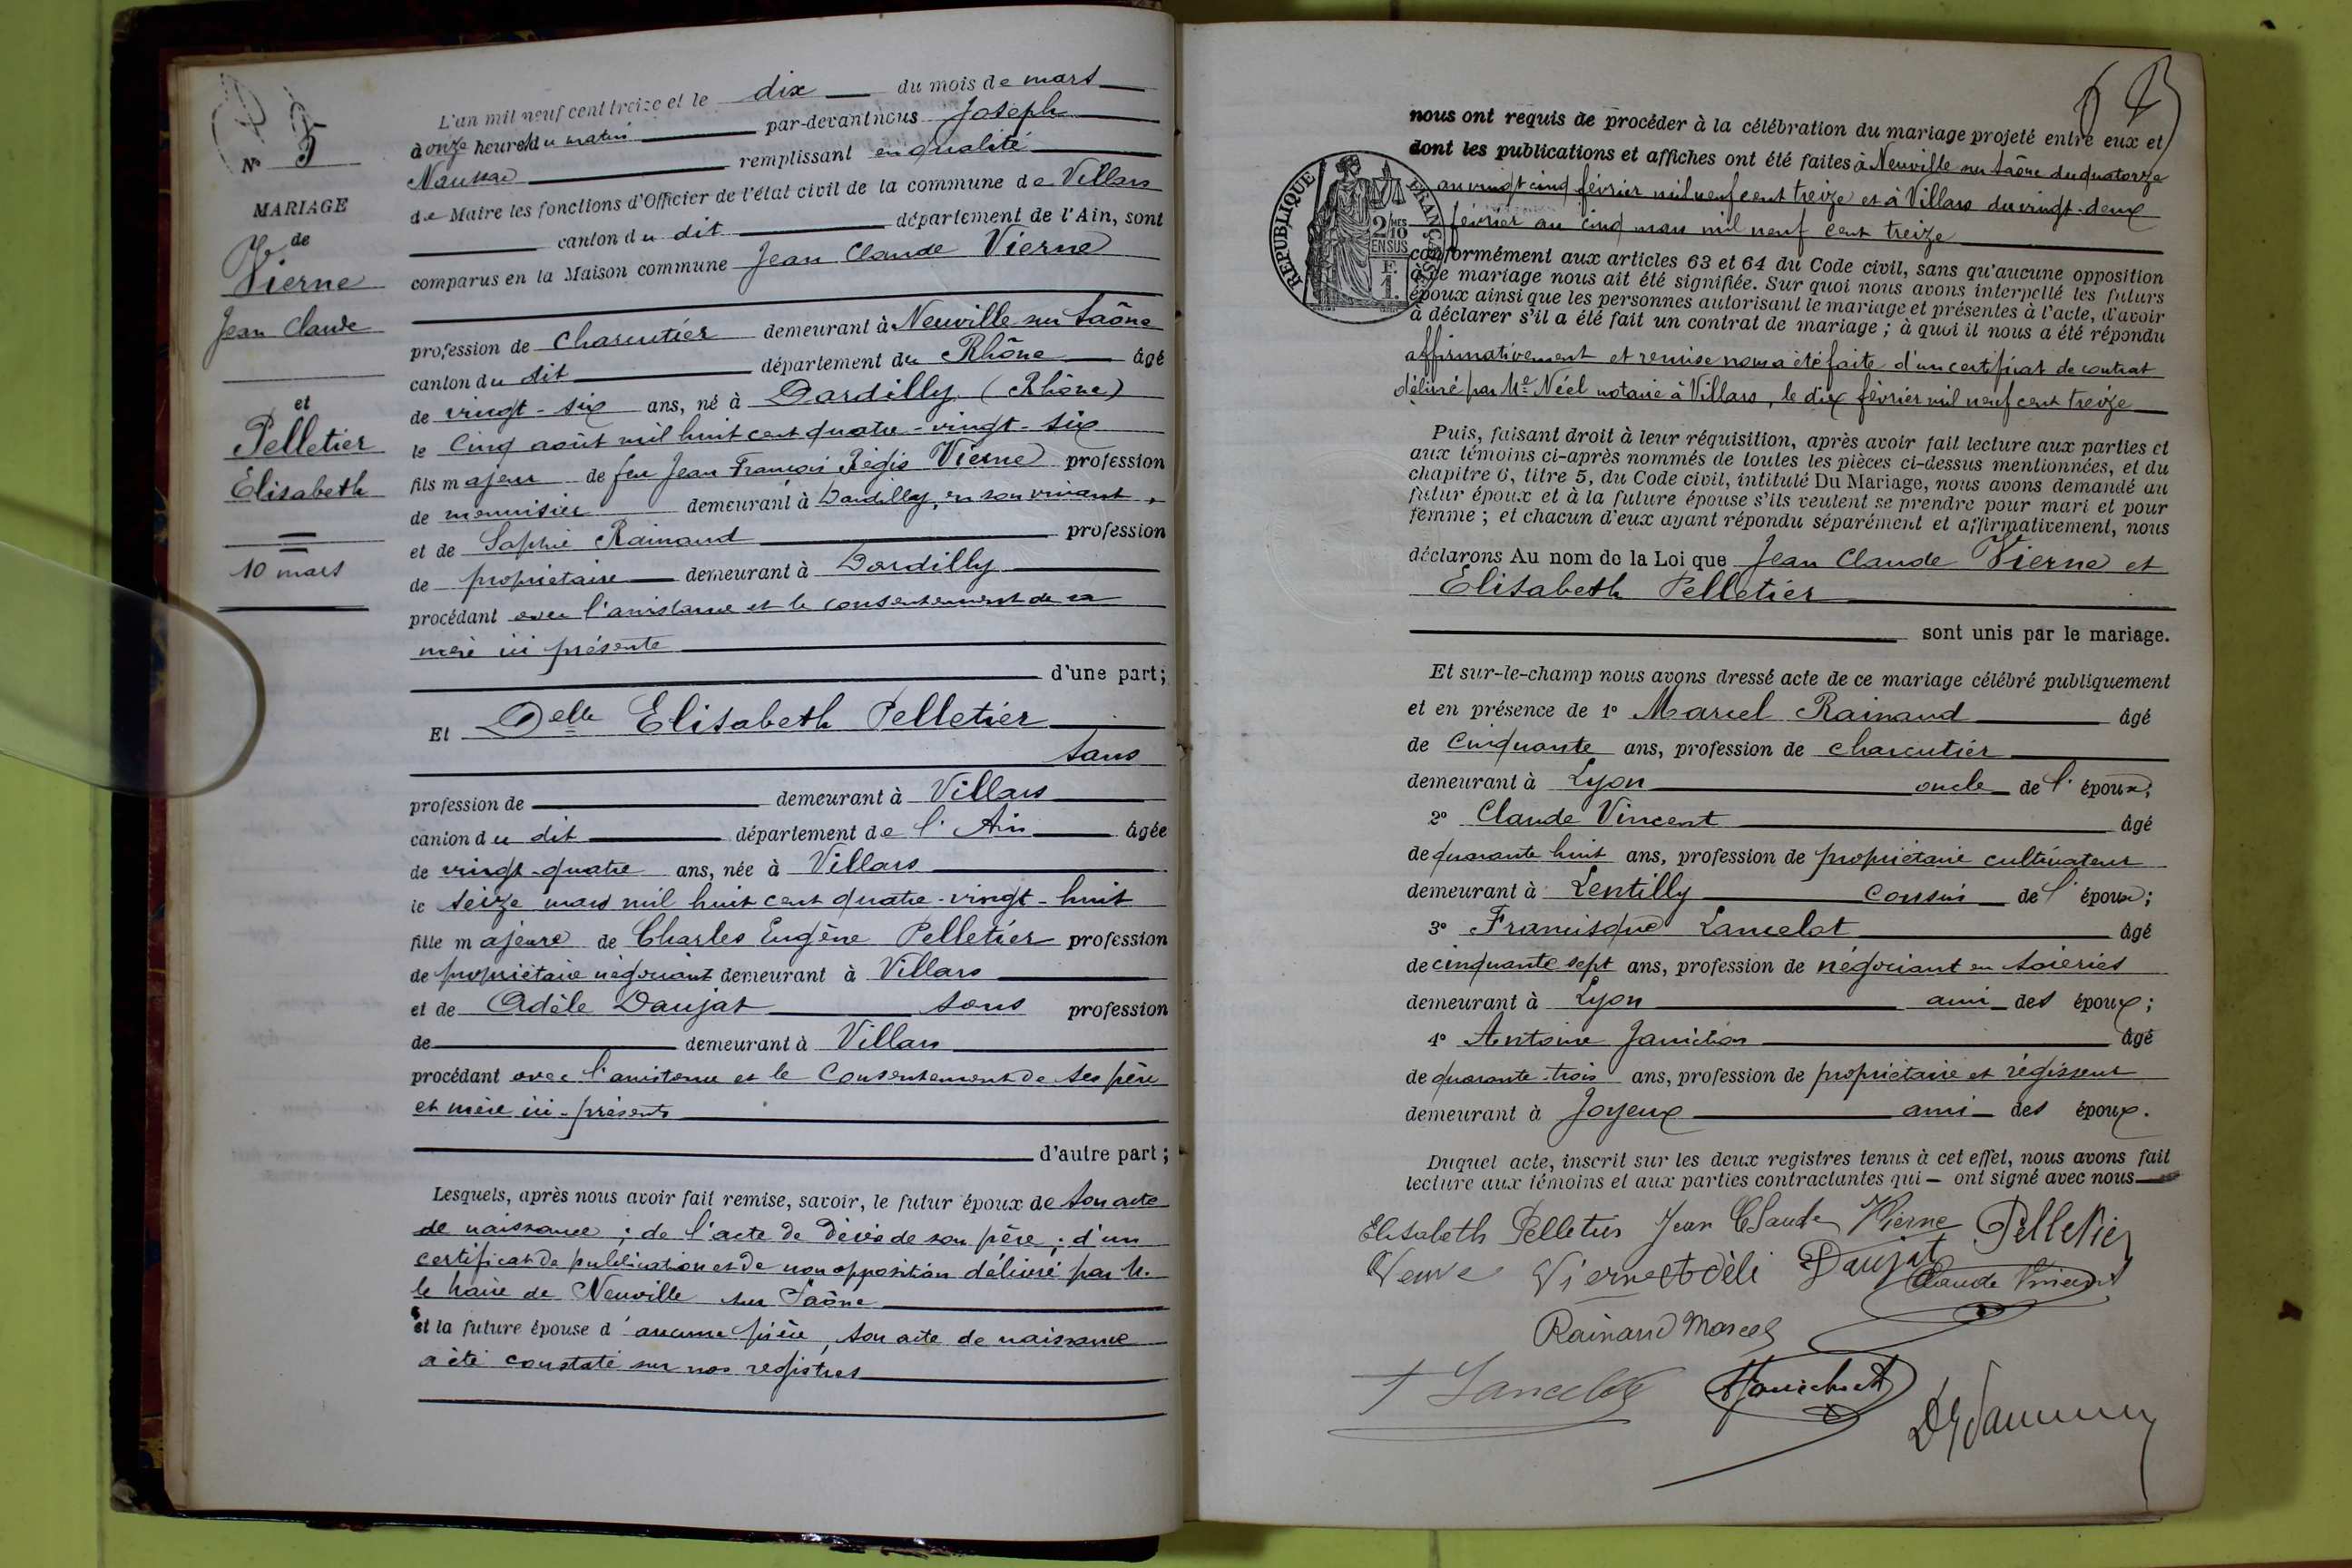 L'an mil neuf cent treize et le dix du mois de mars
à onze heures du matin par-devant nous Joseph
remplissant en qualité
de Maire les fonctions d'Officier de l'état civil de la commune de Villars
canton du dit département de l'Ain, sont
comparus en la Maison commune Jean Claude Vierne
profession de charcutier demeurant à Neuville sur Saône
canton du dit département du Rhône âgé
de vingt-six ans, né à Dardilly (Rhône)
le cinq août mil huit cent quatre-vingt-six
fils majeur de feu Jean François Régis Vierne profession
de menuisier demeurant à Dardilly, en son vivant,
et de Sophie Rainaud profession
de propriétaire demeurant à Dardilly
procédant avec l'assistance et le consentement de sa
mère ici présente
d'une part;
Et Delle Elisabeth Pelletier
sans
profession de demeurant à Villars
canton du dit département de l'Ain âgée
de vingt-quatre ans, née à Villars
le seize mars mil huit cent quatre-vingt-huit
fille majeure de Charles Eugène Pelletier profession
de propriétaire négociant demeurant à Villars
et de Adèle Daujat sans profession
de demeurant à Villars
procédant avec l'assistance et le consentement de ses père
et mère ici-présents
d'autre part;
Lesquels, après nous avoir fait remise, savoir, le futur époux de son acte
de naissance; de l'acte de décès de son père; d'un
certificat de publication et de non opposition délivré par M.
le Maire de Neuville sur Saône
et la future épouse d'aucune pièce, son acte de naissance
a été constaté sur nos registres
No 5
MARIAGE
de
Vierne
Jean Claude
et
Pelletier
Elisabeth
10 mars
nous ont requis de procéder à la célébration du mariage projeté entre eux et
dont les publications et affiches ont été faites à Neuville sur Saône du quatorze
au vingt cinq février mil neuf cent treize et à Villars du vingt-deux
février au cinq mars mil neuf cent treize
conformément aux articles 63 et 64 du Code civil, sans qu'aucune opposition
à ce mariage nous ait été signifiée. Sur quoi nous avons interpellé les futurs
époux ainsi que les personnes autorisant le mariage et présentes à l'acte, d'avoir
à déclarer s'il a été fait un contrat de mariage; à quoi il nous a été répondu
affirmativement et remise nous a été faite d'un certificat de contrat
délivré par Me Néel notaire à Villars, le dix février mil neuf cent treize
Puis, faisant droit à leur réquisition, après avoir fait lecture aux parties et
aux témoins ci-après nommés de toutes les pièces ci-dessus mentionnées, et du
chapitre 6, titre 5, du Code civil, intitulé Du Mariage, nous avons demandé au
futur époux et à la future épouse s'ils veulent se prendre pour mari et pour
femme; et chacun d'eux ayant répondu séparément et affirmativement, nous
déclarons Au nom de la Loi que Jean Claude Vierne et
Elisabeth Pelletier
sont unis par le mariage.
Et sur-le-champ nous avons dressé acte de ce mariage célébré publiquement
et en présence de 1° Marcel Rainaud âgé
de cinquante ans, profession de charcutier
demeurant à Lyon oncle de l'époux;
2° Claude Vincent âgé
de quarante huit ans, profession de propriétaire cultivateur
demeurant à Lentilly cousin de l'époux;
3° Francisque Lancelot âgé
de cinquante sept ans, profession de négociant en soieries
demeurant à Lyon ami des époux;
4° Antoine âgé
de quarante-trois ans, profession de propriétaire et régisseur
demeurant à Joyeux ami des époux.
Duquel acte, inscrit sur les deux registres tenus à cet effet, nous avons fait
lecture aux témoins et aux parties contractantes qui – ont signé avec nous
Elisabeth Pelletier Jean Claude Vierne Pelletier
Veuve Vierne Adèle Daujat Claude Vincent
Rainaud Marcel
Lancelot
REPUBLIQUE FRANÇAISE
2/10 MES
EN SUS
F.
1.